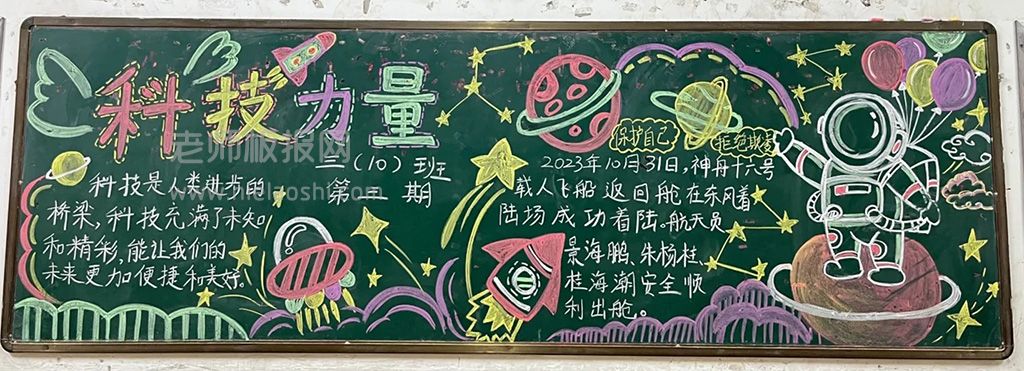 科技力量
老师板报网
三(10)班
第二期
科技是人类进步的
桥梁,科技充满了未知
和精彩,能让我们的
未来更加便捷和美好。
保护自己
拒绝欺凌
2023年10月31日,神舟十六号
载人飞船返回舱在东风着
陆场成功着陆。航天员
景海鹏、朱杨柱、
桂海潮安全顺
利出舱。